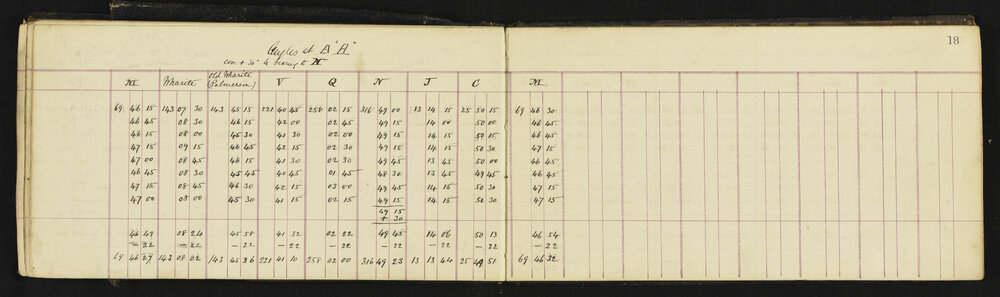 18
Angles at Δ "A"
corr. + 30" to bearing to N
M Wharite Old Wharite (Palmerson) V Q N J C M
69 46 15 143 07 30 143 45 15 221 40 45 258 02 15 316 49 00 13 14 15 25 50 15 69 46 30
46 45 08 30 46 15 42 00 02 45 49 15 14 00 50 00 46 45
46 15 08 00 46 30 41 30 02 00 49 15 14 15 50 15 46 45
47 15 09 15 46 45 42 15 02 30 49 15 14 15 50 30 47 15
47 00 08 45 46 15 41 30 02 30 49 45 13 45 50 00 46 45
46 45 08 30 45 45 40 45 01 45 48 30 13 45 49 45 46 45
47 15 08 45 46 30 42 15 03 00 49 45 14 15 50 30 47 15
47 00 08 00 45 30 41 15 02 15 49 15 14 15 50 30 47 15
49 15
+ 30
46 49 08 24 45 58 41 32 02 22 49 45 14 06 50 13 46 54
— 22 — 22 — 22 — 22 — 22 — 22 — 22 — 22 — 22
69 46 27 143 08 02 143 45 36 221 41 10 258 02 00 316 49 23 13 13 44 25 49 51 69 46 32